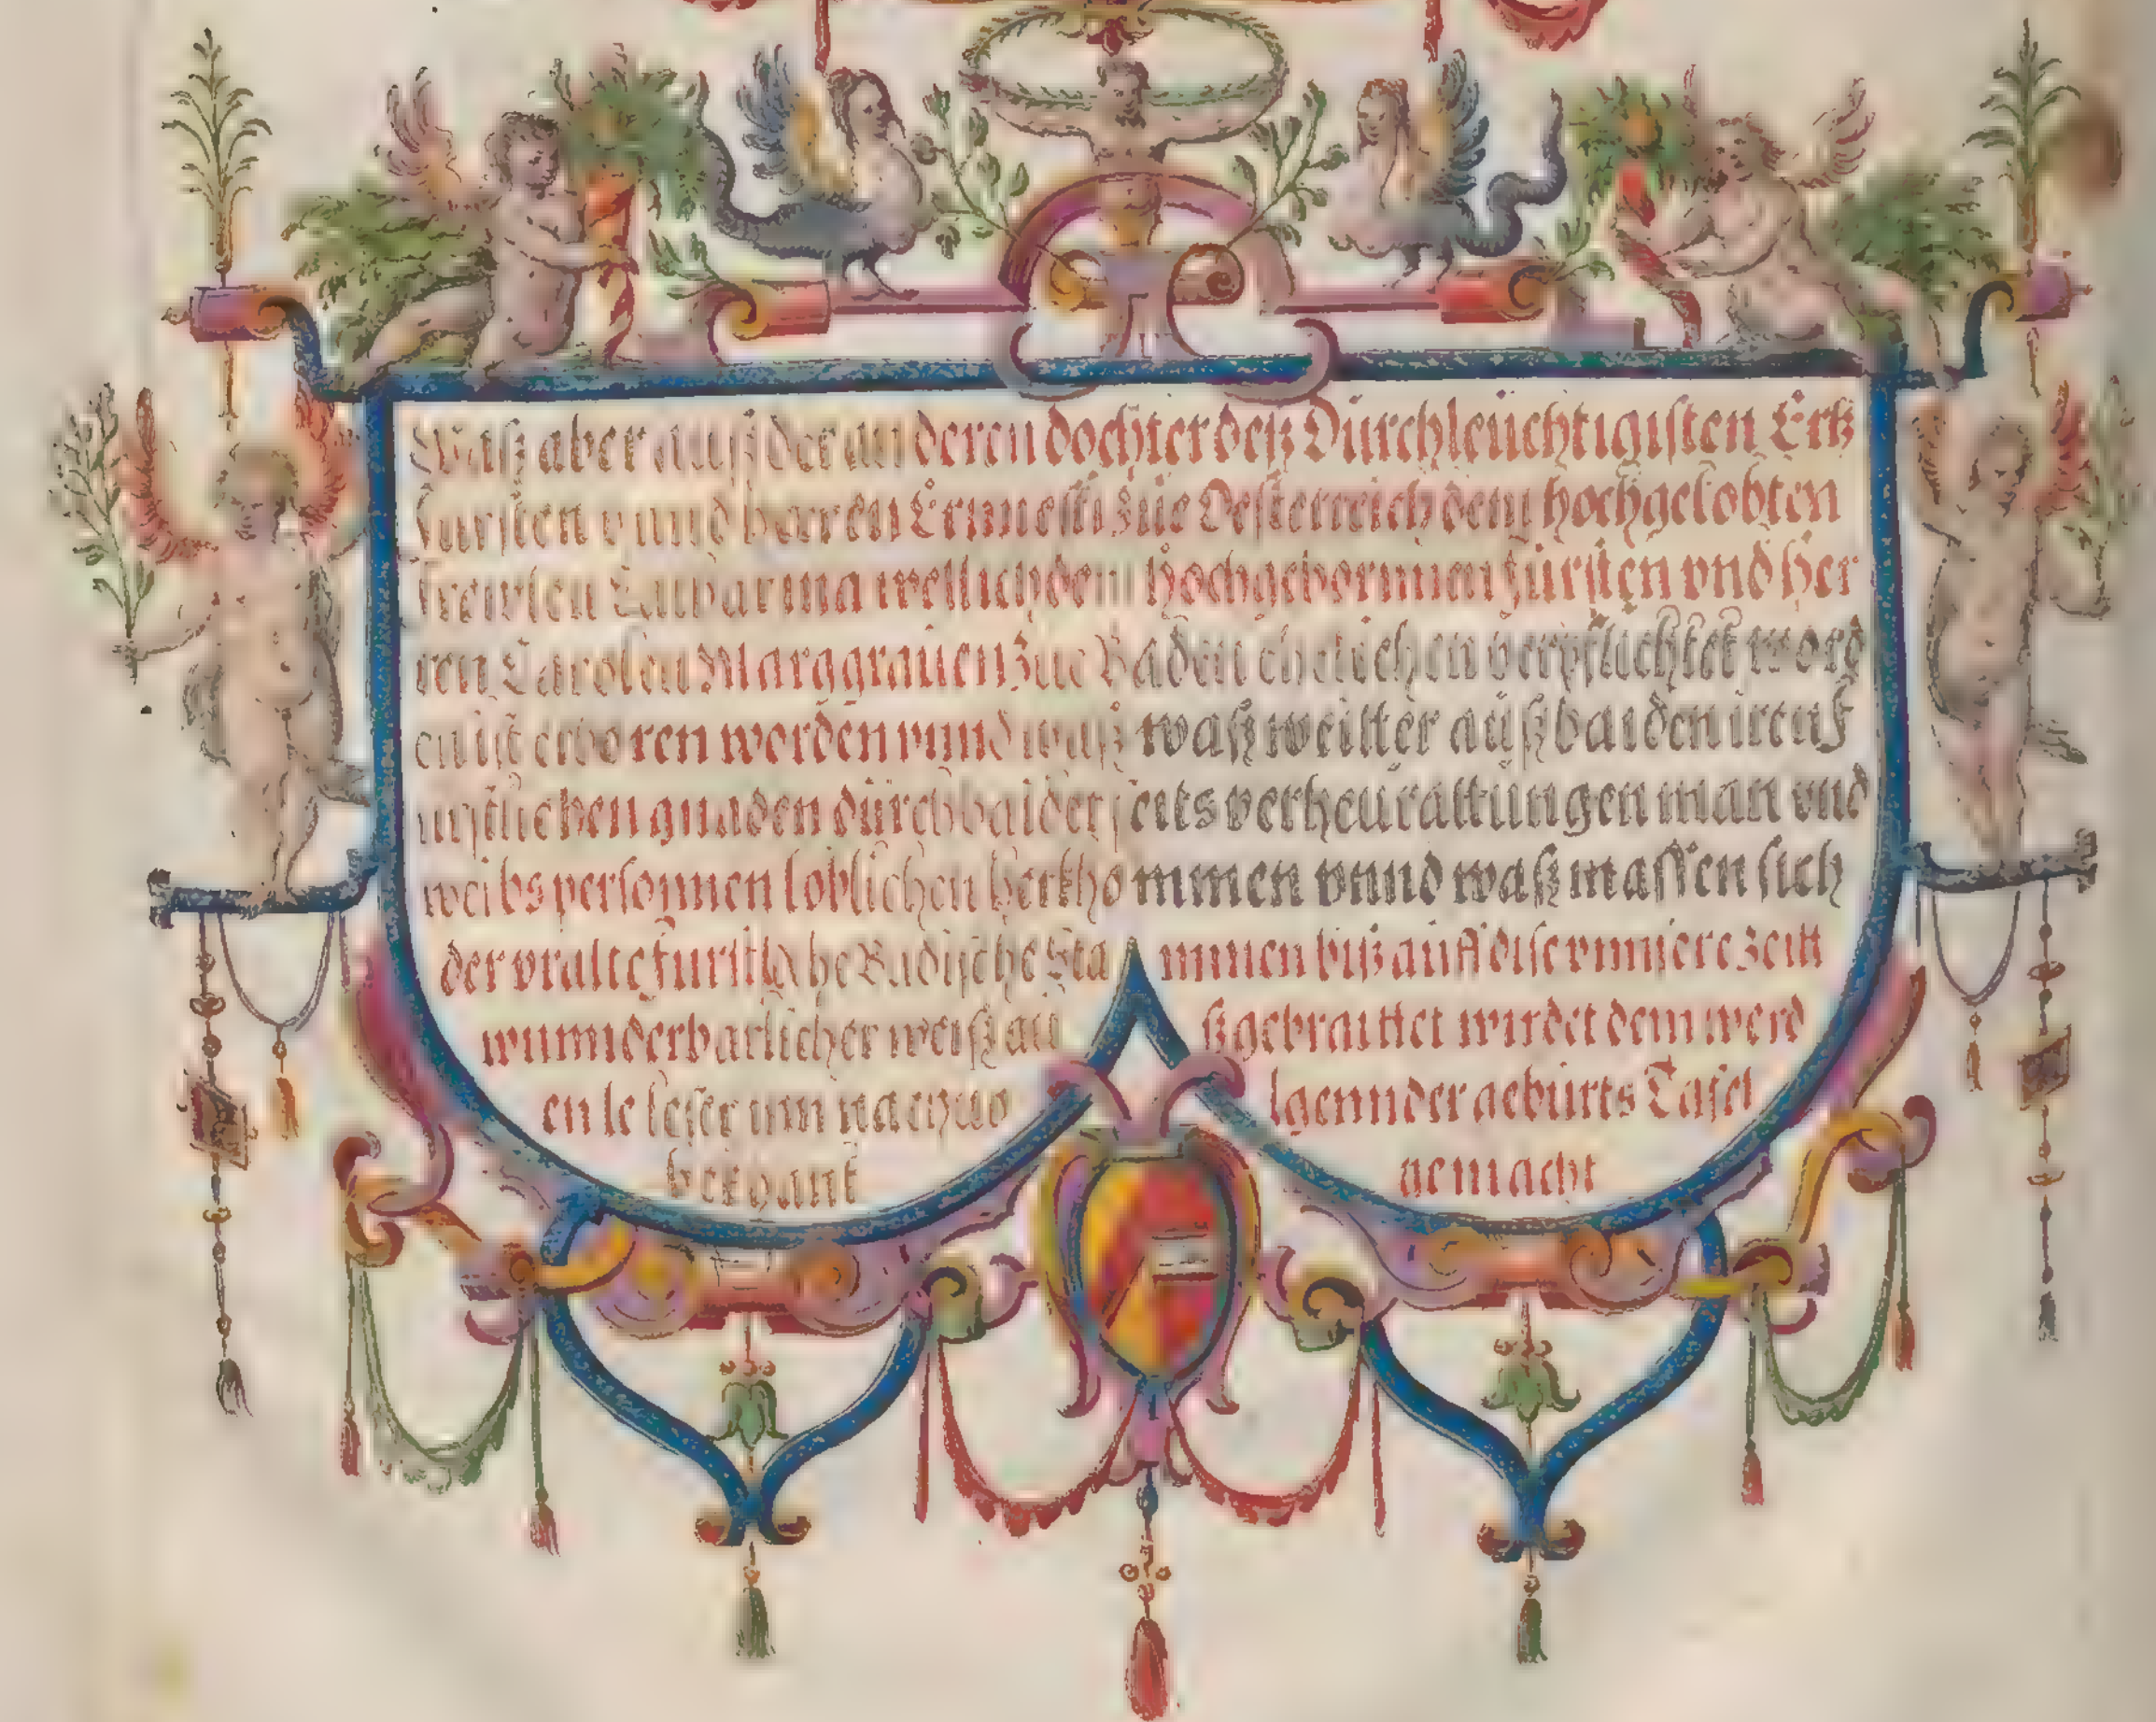 Waß aber auß der anderen dochter deß Dürchleüchtigisten Ertz
fursten vnnd herren Ernnesti züe Oesterreich dem hochgelobten
Catharina wellich dem hochgebornnen fürsten vnd Her
ren Carolen Marggrauen züe Baden ehelichen verpflichtet word
en ist erboren worden vnnd waß waß weitter aüß baiden iren F
urstlichen gnaden dürch baider seits verheürattüngen man vnd
weibs personnen loblichen herkhommen vnnd waß massen sich
der vralte furstliche Badische Sta mmen biß auff dise vnnsere zeitt
wunnderbarlicher weiß aü ßgebraittet wirdet dem werd
en le leser inn lgennder gebürts Tafel
bekhant gemacht